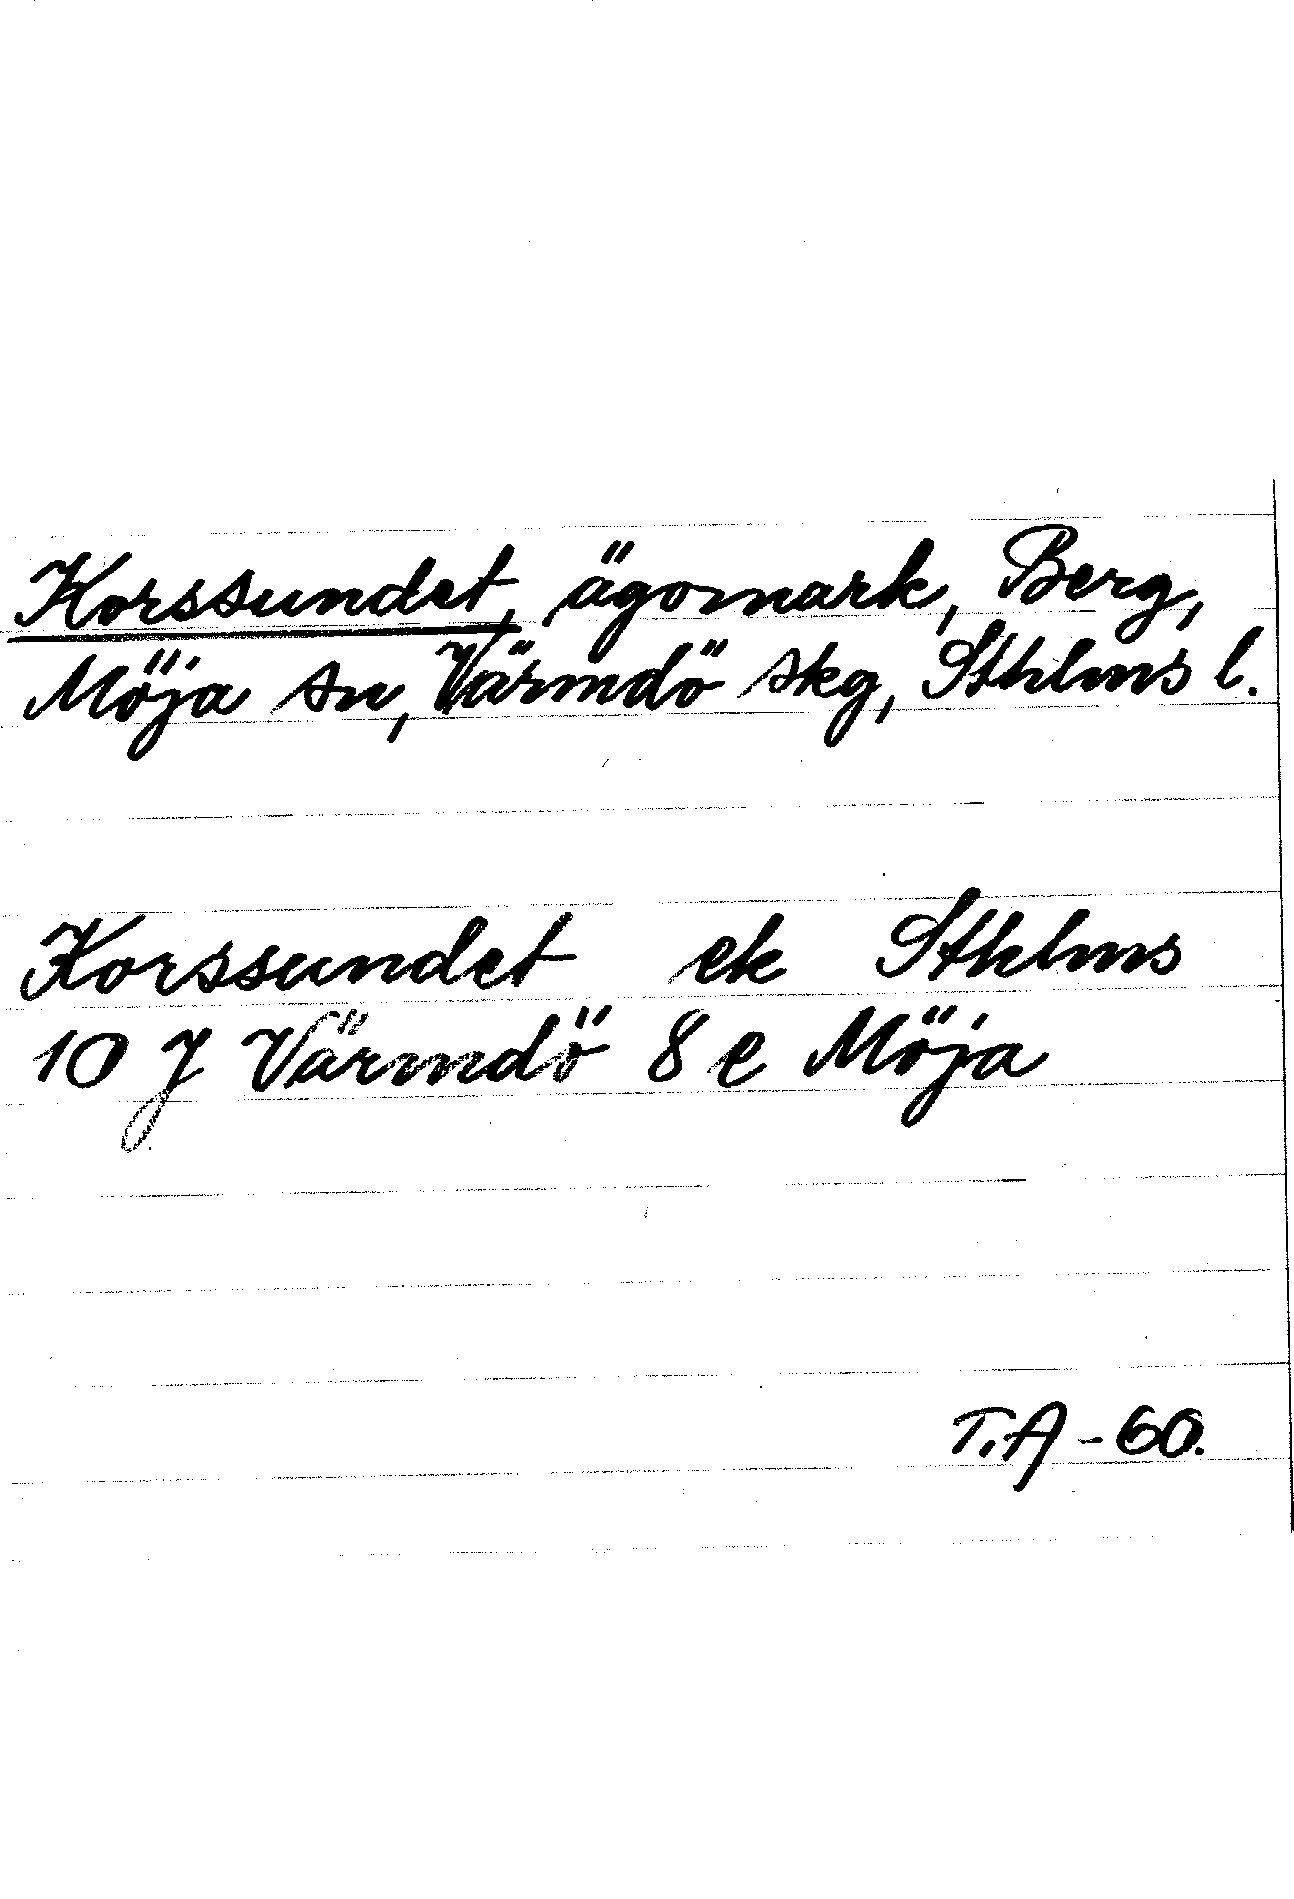 Korssundet, ägomark, Berg,
Möja sn, Värmdö skg, Sthlms l.
Korssundet ek Sthlms
10 J Värmdö 8 e Möja
T.A - 60.